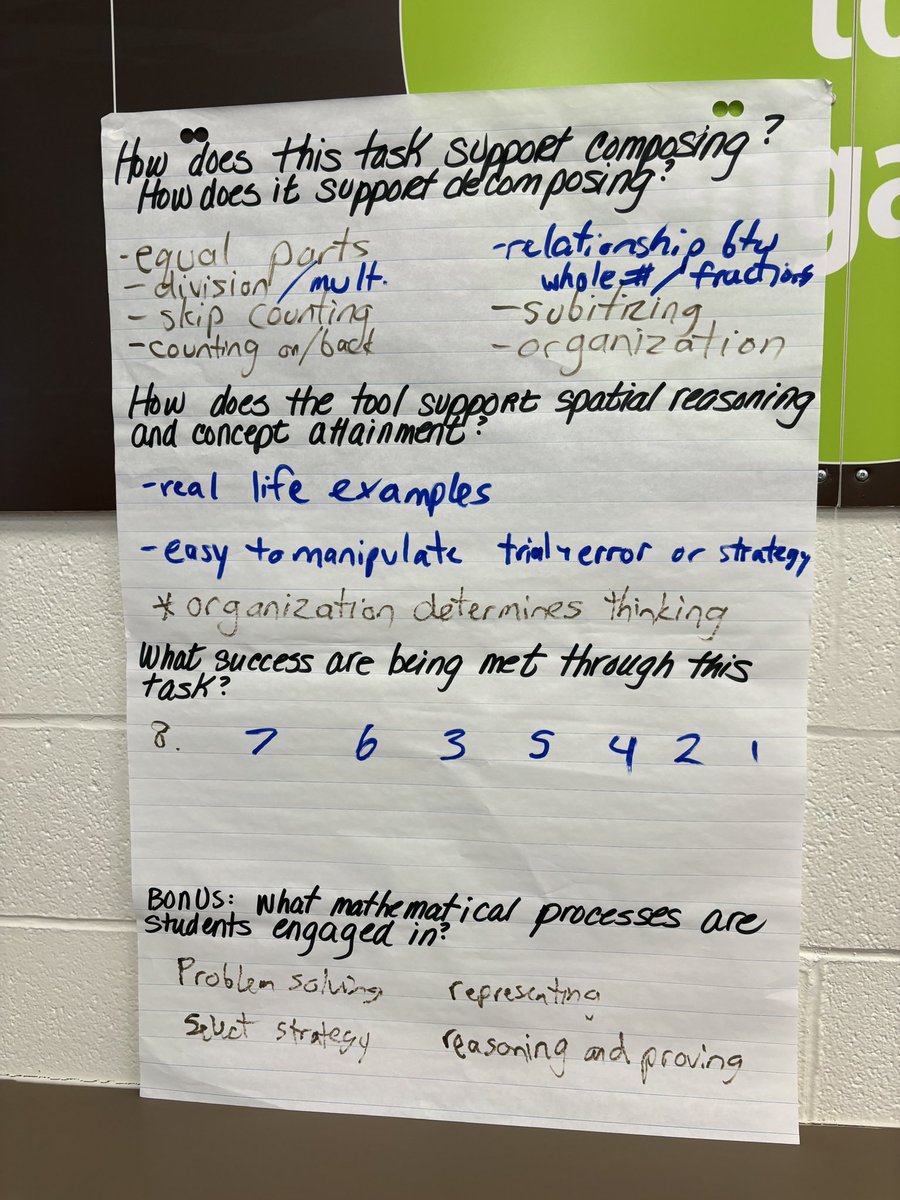 How does this task support composing?
How does it support decomposing?
- equal parts
- division / mult.
- skip counting
- counting on/back
- relationship btw
whole # / fractions
- subitizing
- organization
How does the tool support spatial reasoning
and concept attainment?
- real life examples
- easy to manipulate trial + error or strategy
* organization determines thinking
What success are being met through this
task?
8. 7 6 3 5 4 2 1
Bonus: What mathematical processes are
students engaged in?
Problem solving representing
Select strategy reasoning and proving